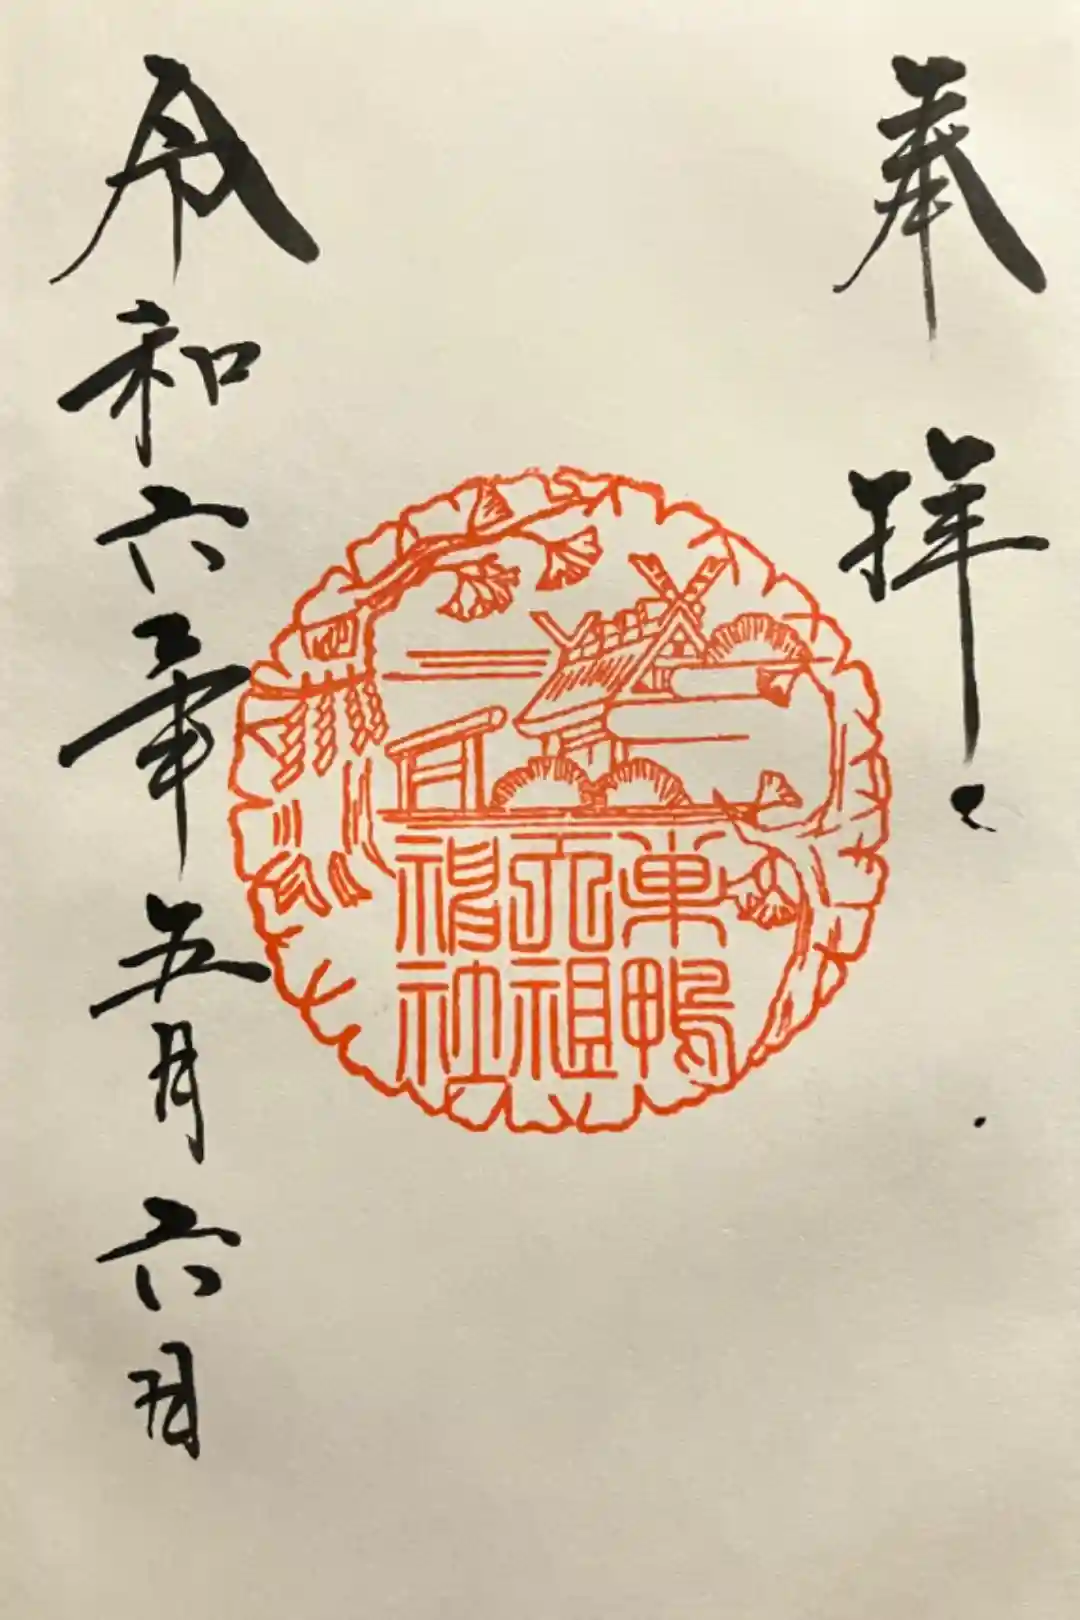 奉拝
巣鴨
天祖
神社
令和六年五月六日